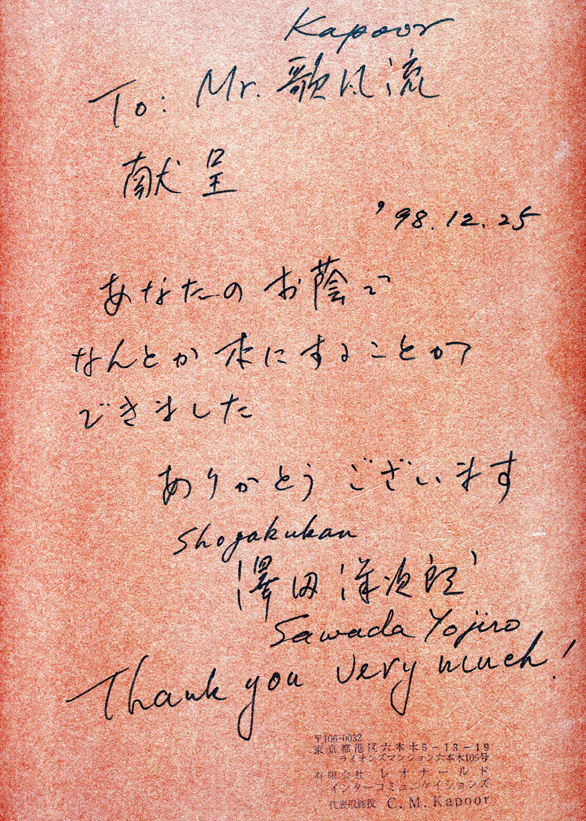 Kapoor
To: Mr. 歌凡流
献呈
'98.12.25
あなたのお蔭で
なんとか本にすることが
できました
ありがとうございます
Shogakukan
澤田洋次郎
Sawada Yojiro
Thank you very much!
〒106-0032
東京都港区六本木5-13-19
ライオンズマンション六本木105号
有限会社 レオナールド
インターコミュニケイションズ
代表取締役 C. M. Kapoor